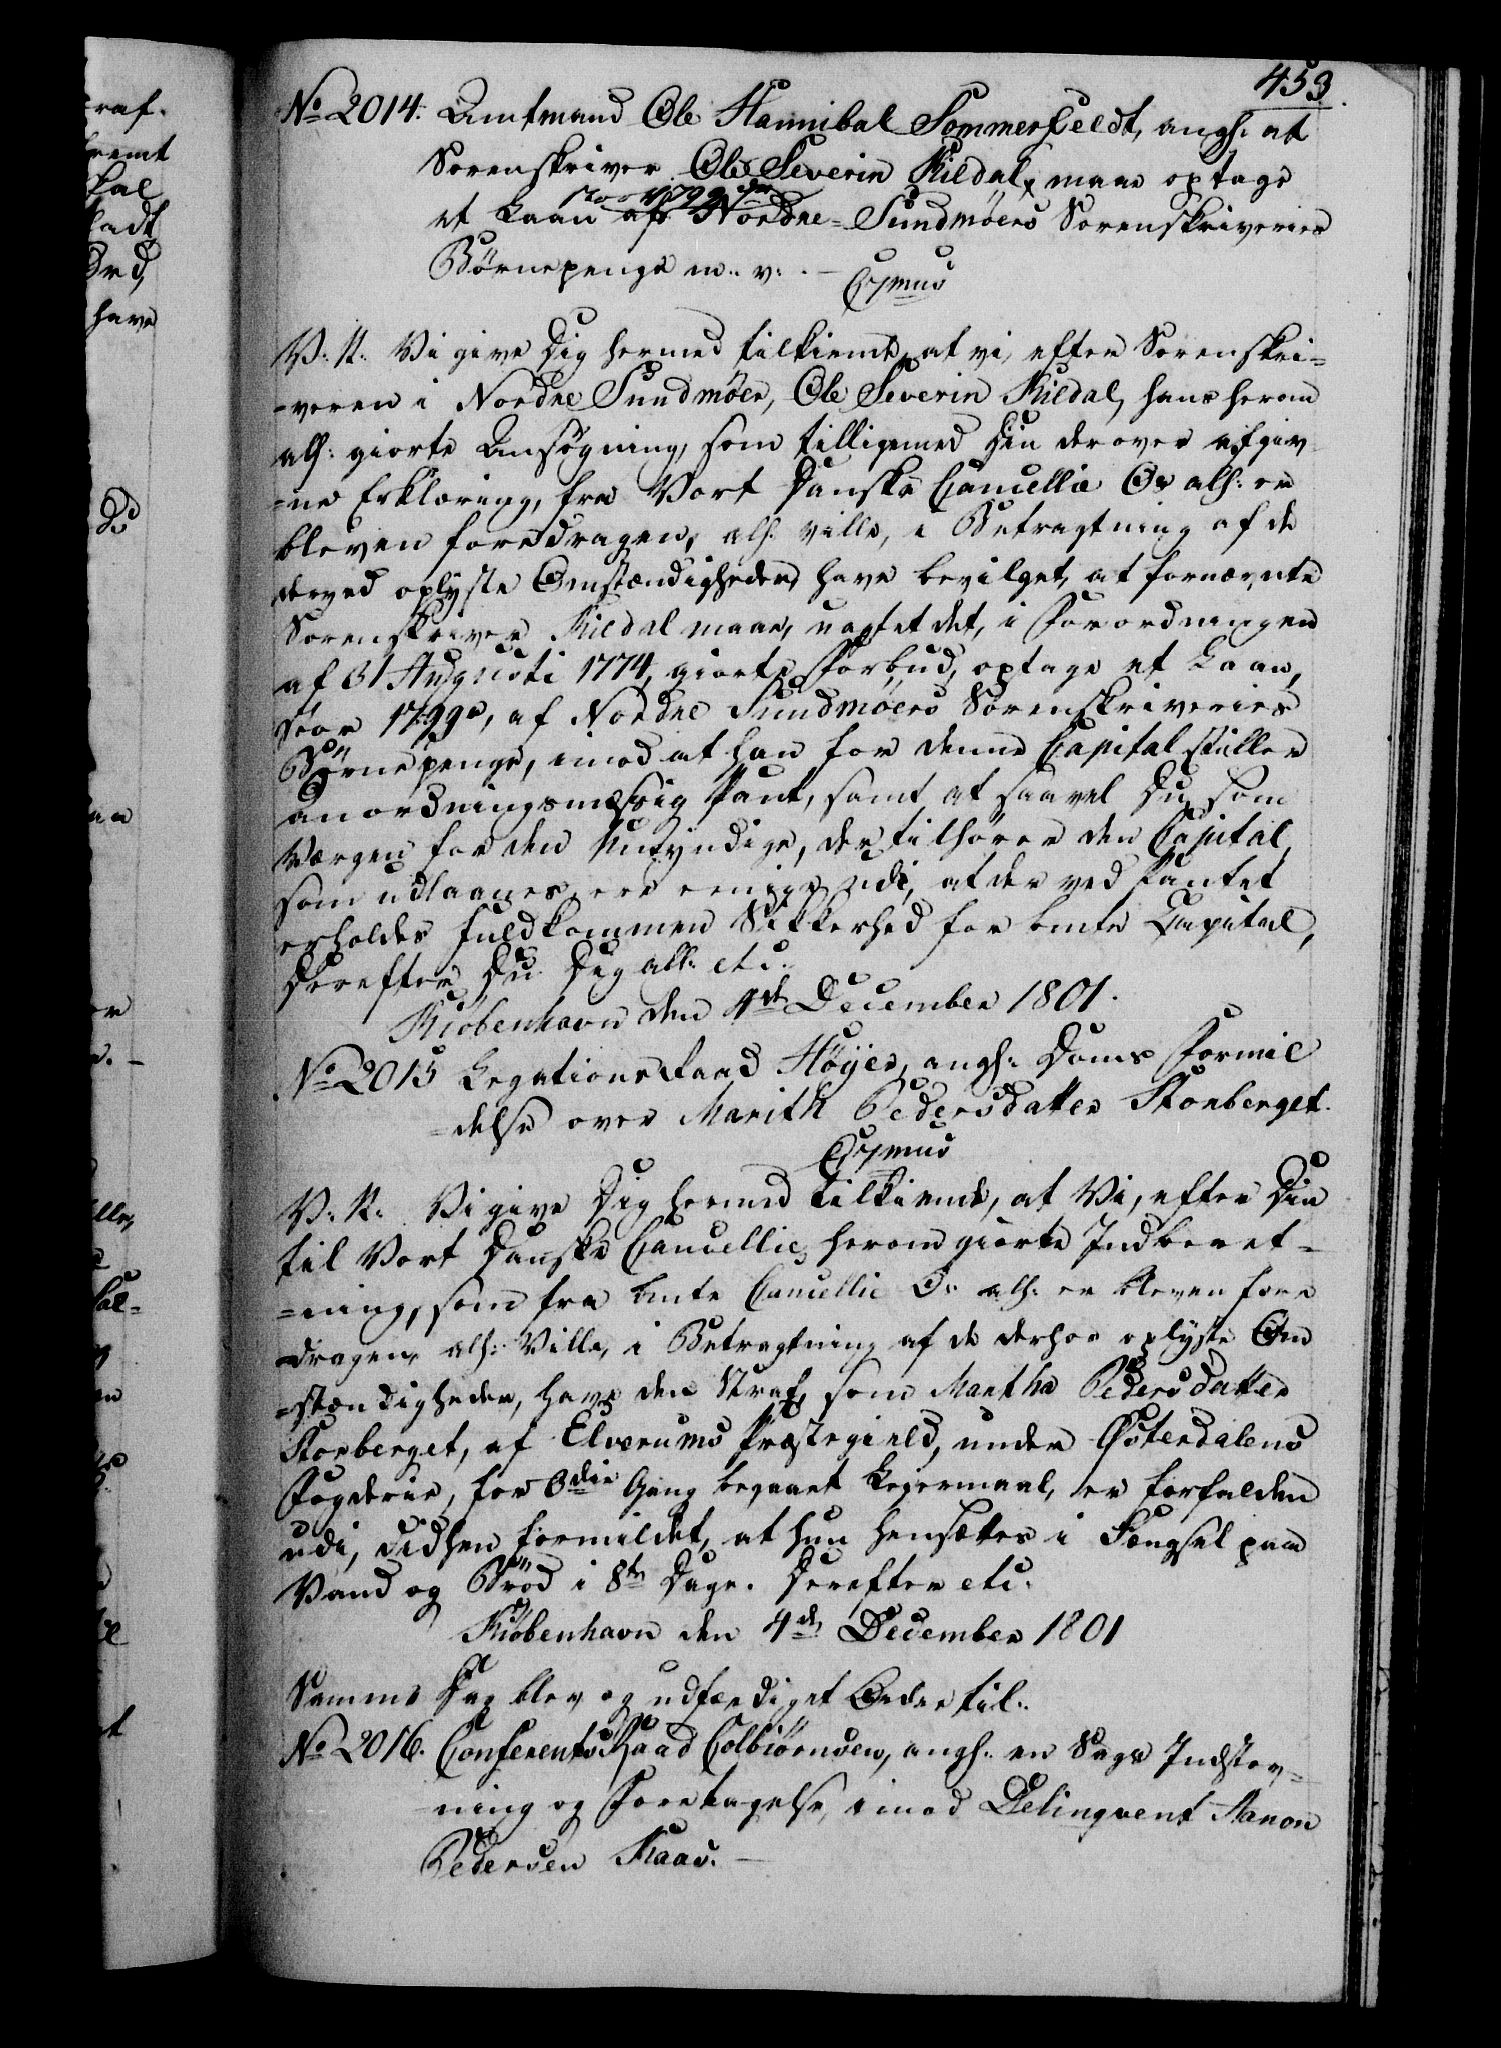 453.
No 2014. Amtmand Ole Hannibal Sommerfeldt, angs: at
Sorenskriver Ole Severin Kildal maae optage
et Laan af Nordre-Sundmøers Sorenskriveries
Børnepenge m: v: –
Christianus
V: K: Vi give Dig hermed tilkiende, at vi, efter Sorenskri-
-veren i Nordre Sundmøer, Ole Severin Kildal, hans herom
alh: giorte Ansøgning, som tilligemed Din derover afgiv
-ne Erklæring, fra Vort Danske Cancellie Os alh: er
bleven foredragen, alh: ville, i Betragtning af de
derved oplyste Omstændigheder, have bevilget, at fornævnte
Sorenskriver Kildal maae, uagtet det, i Forordningen
af 31 Augusti 1774, giorte Forbud, optage et Laan,
stor 1799 , af Nordre Sundmøers Sorenskriveries
Børnepenge, imod at han for denne Capital stiller
anordningsmæssig Pant, samt at saavel Du som
Værgen for den Umyndige, der tilhører den Capital,
som udlaanes, ere eenige udi, at der ved Pantet
erholdes fuldkommen Sikkerhed for bemte Capital,
Derefter Du Dig alh: etc:
Kiøbenhavn den 4de December 1801.
No 2015 Legationsraad Høyer, angs: Doms Formil
-delse over Marith Pedersdatter Storberget.
V: K: Vi give Dig hermed tilkiende, at Vi, efter Din
til Vort Danske Cancellie herom giorte Indberet-
-ning, som fra bemte Cancellie Os alh: er bleven fore
dragen, alh: Ville, i Betragtning af de derhos oplyste Om
-stændigheder, have den Straf, som Martha Pedersdatter
Storberget, af Elverums Præstegield, under Østerdalens
Fogderie, for 3die Gang begaaet Leiermaal, er forfalden
udi, didhen formildet, at hun hensættes i Fængsel paa
Vand og Brød i 8te Dage. Derefter etc:
Kiøbenhavn den 4de December 1801
Samme Dag blev og udfærdiget Ordre til:
No 2016. ConferentsRaad Colbiørnsen, angs: en Sags Indstev-
ning og Foretagelse, imod Delinqvent Aanon
Pedersen Kaas. –